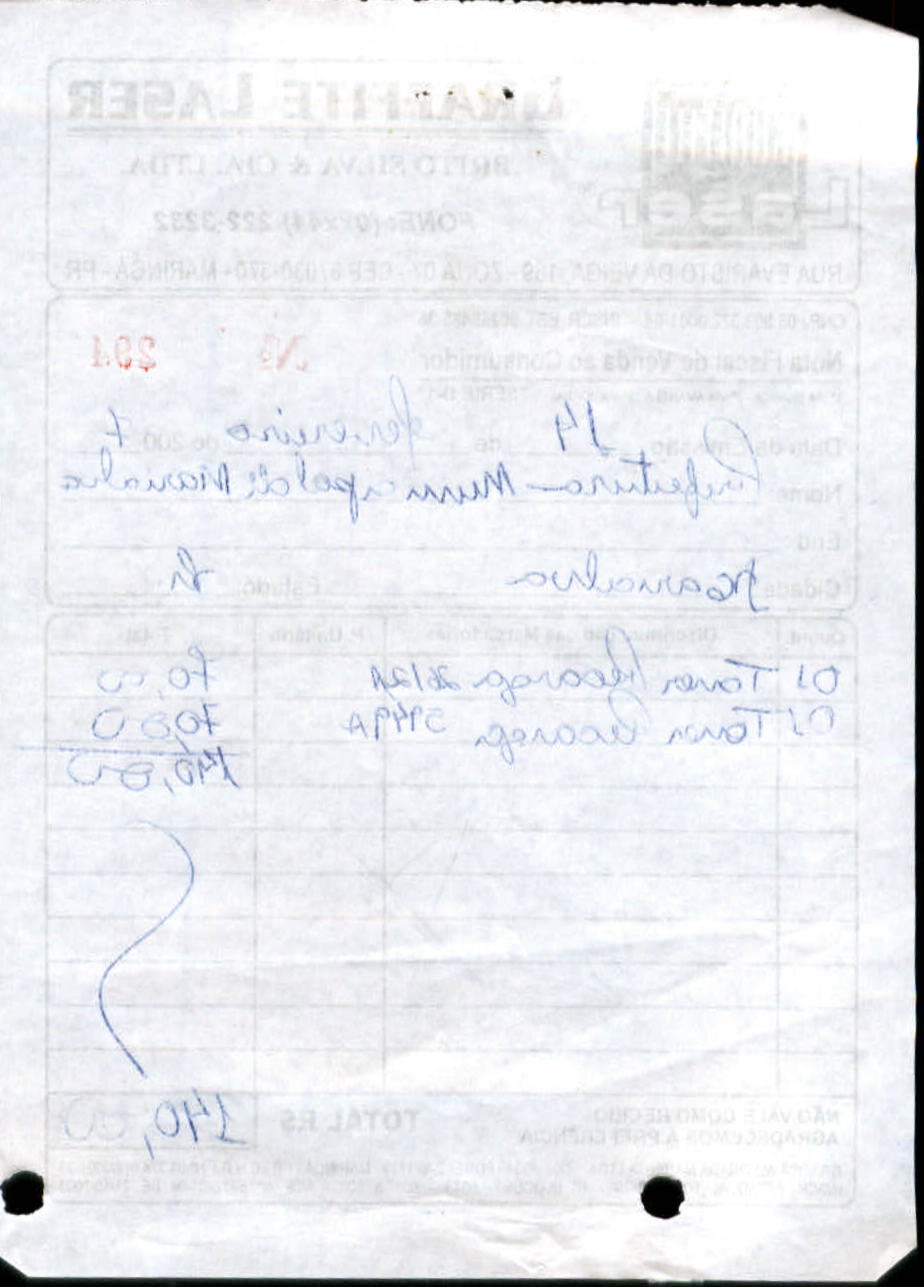 GRAFFITE LASER
Laser
BRITO SILVA & CIA. LTDA.
FONE: (0xx44) 222-3232
RUA EVARISTO DA VEIGA, 159 - ZONA 07 - CEP 87030-370 - MARINGÁ - PR
Nota Fiscal de Venda ao Consumidor Nº 294
SÉRIE D-1
Data da Emissão 14 de fevereiro de 200 7
Nome Prefeitura Municipal de Marialva
End.
Cidade: Marialva Estado: Pr
Quant. Discriminação das Mercadorias P. Unitário Total
01 Toner Recarga 2612A 70,00
01 Toner Recarga 5949A 70,00
140,00
NÃO VALE COMO RECIBO
AGRADECEMOS A PREFERÊNCIA
TOTAL R$ 140,00